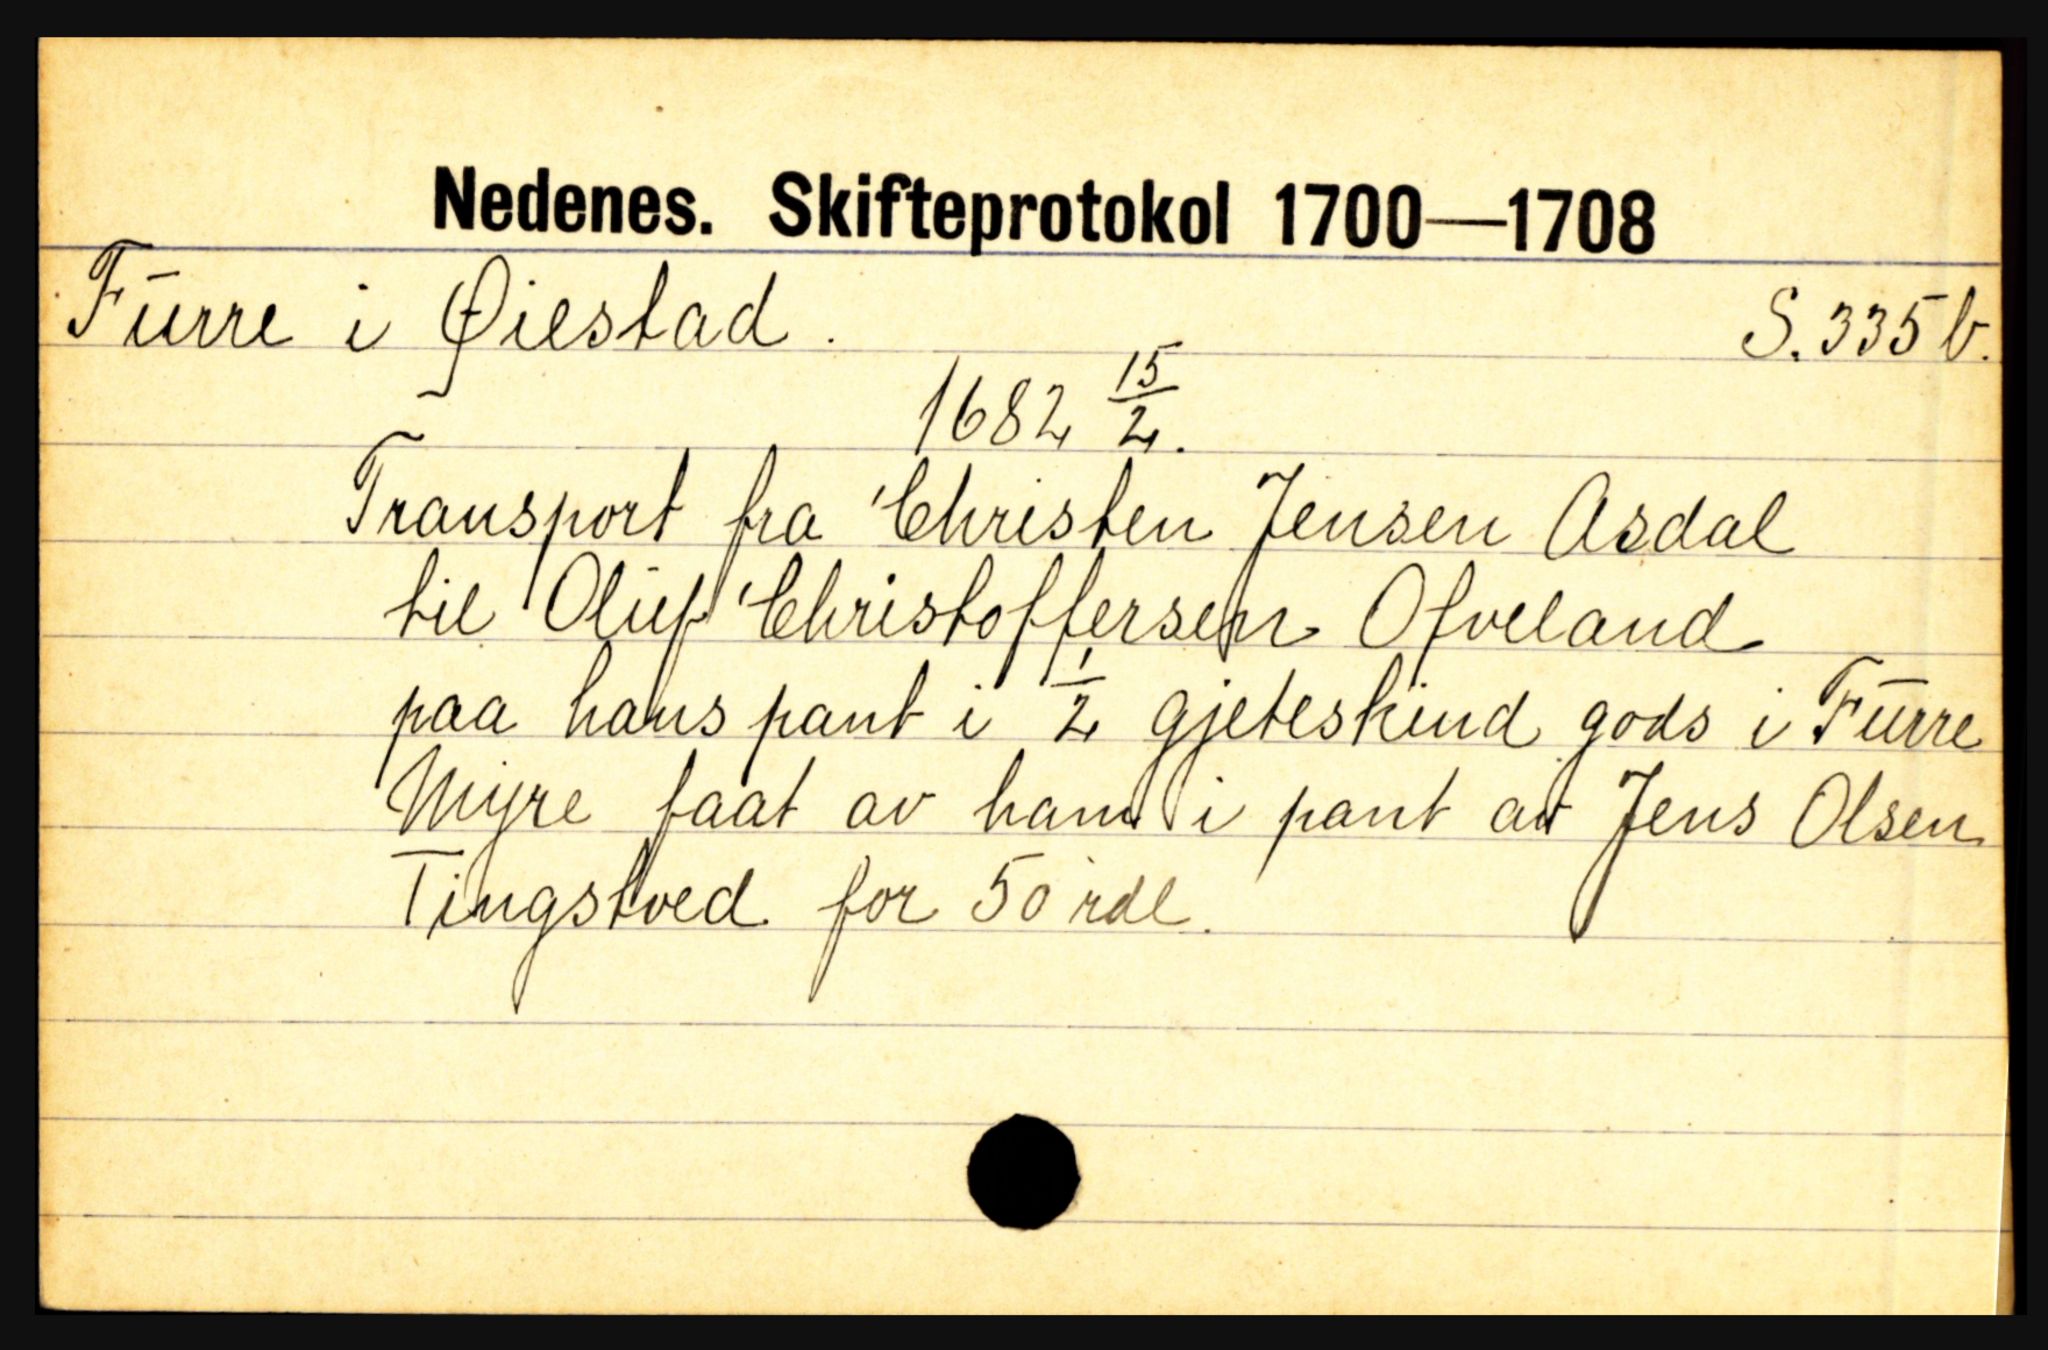 Nedenes. Skifteprotokol 1700—1708
Furre i Øiestad. S. 335 b.
1682 15/2.
Transport fra Christen Jensen Asdal
til Oluf Christoffersen Ofveland
paa hans pant i 1/2 gjeteskind gods i Furre
Myre faat av ham i pant av Jens Olsen
Tingstved for 50 rdl.